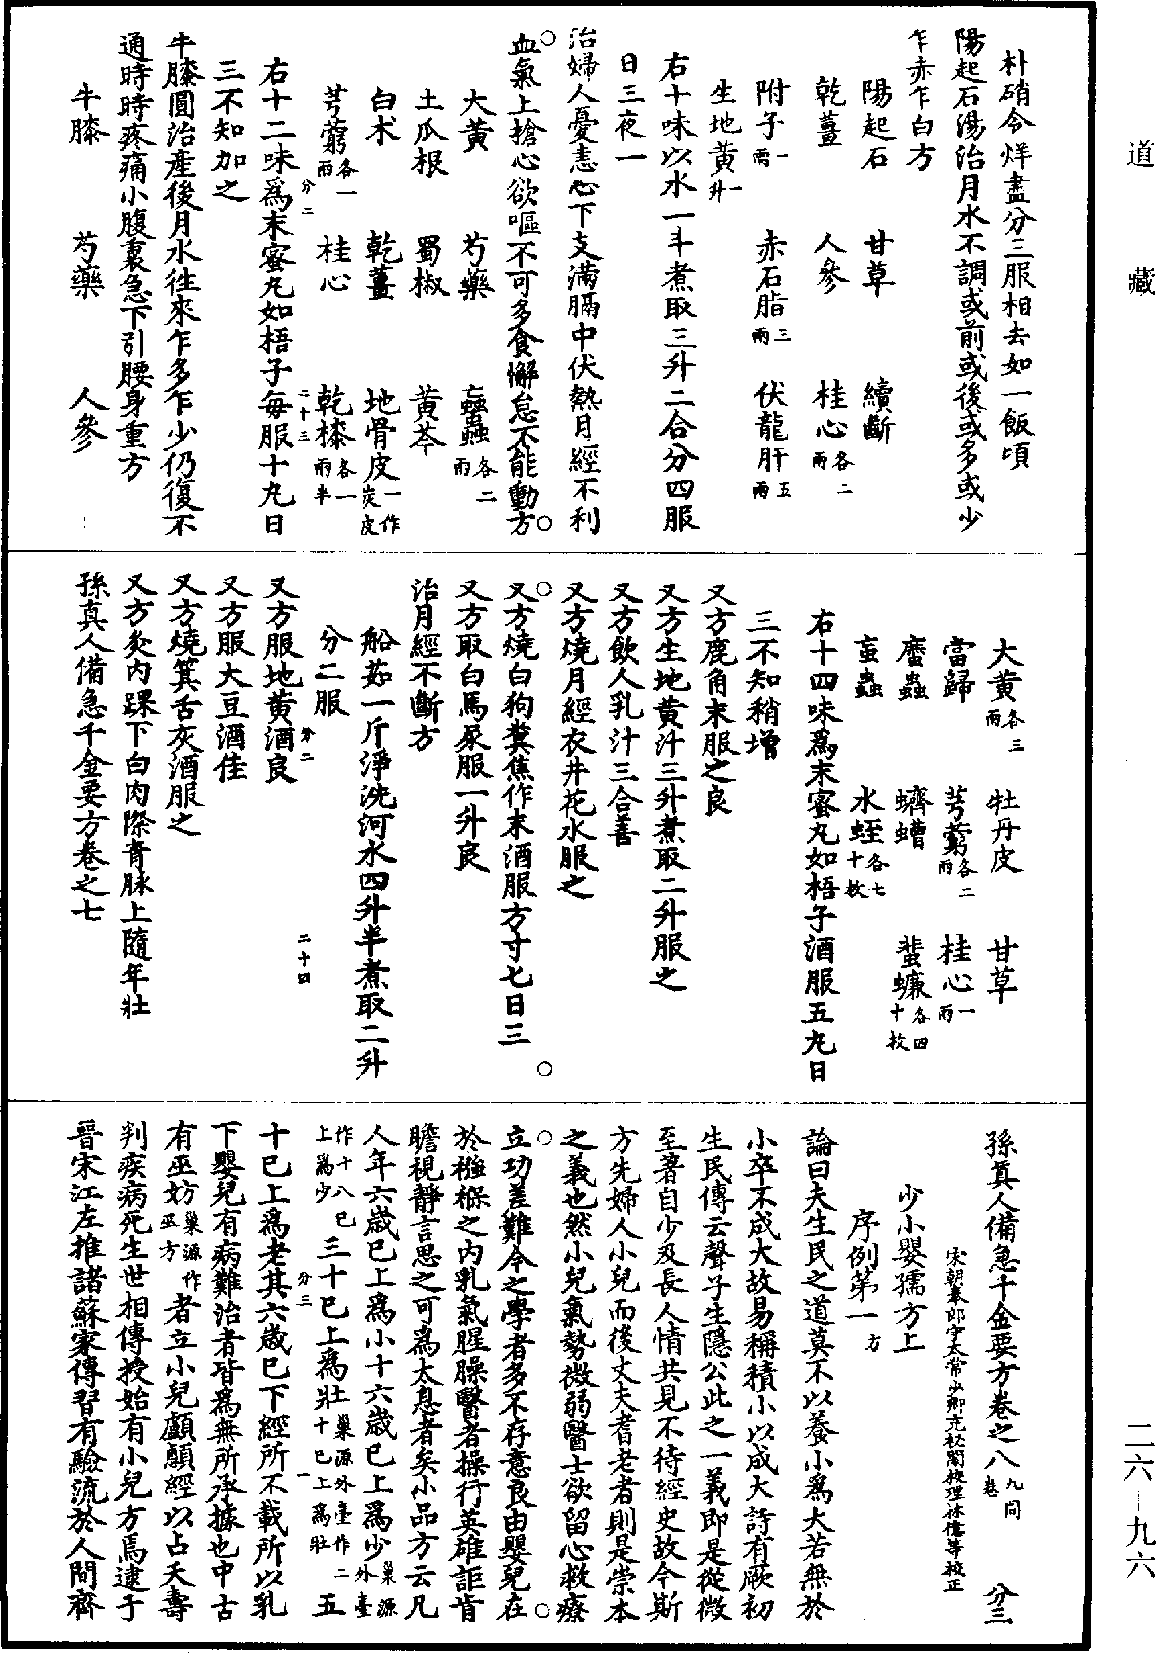 道藏
二六—九六
朴硝令烊盡分三服相去如一飯頃
陽起石湯治月水不調或前或後或多或少
乍赤乍白方
陽起石 甘草 續斷
乾薑 人參 桂心各二兩
附子一兩 赤石脂三兩 伏龍肝五兩
生地黃一升
右十味以水一斗煮取三升二合分四服
日三夜一
治婦人憂恚心下支滿膈中伏熱月經不利
血氣上搶心欲嘔不可多食懈怠不能動方
大黃 芍藥 䗪蟲各二兩
土瓜根 蜀椒 黃芩
白朮 乾薑 地骨皮一作炭皮
芎藭各一兩 桂心 乾漆各一兩半
分二 二十三
右十二味爲末蜜丸如梧子每服十丸日
三不知加之
牛膝圓治產後月水往來乍多乍少仍復不
通時時疼痛小腹裏急下引腰身重方
牛膝 芍藥 人參
大黃各三兩 牡丹皮 甘草
當歸 芎藭各二兩 桂心一兩
䗪蟲 蠐螬 蜚蠊各四十枚
䖟蟲 水蛭各七十枚
右十四味爲末蜜丸如梧子酒服五丸日
三不知稍增
又方鹿角末服之良
又方生地黃汁三升煮取二升服之
又方飲人乳汁三合善
又方燒月經衣井花水服之
又方燒白狗糞焦作末酒服方寸七日三
又方取白馬尿服一升良
治月經不斷方
船茹一斤淨洗河水四升半煮取二升
分二服
分二 二十四
又方服地黃酒良
又方服大豆酒佳
又方燒箕舌灰酒服之
又方灸內踝下白肉際青脉上隨年壯
孫真人備急千金要方卷之七
孫真人備急千金要方卷之八九同卷 分三
宋朝奉郎守太常少卿充秘閣校理林億等校正
少小嬰孺方上
序例第一方
論曰夫生民之道莫不以養小爲大若無於
小卒不成大故易稱積小以成大詩有厥初
生民傳云聲子生隱公此之一義即是從微
至著自少及長人情共見不待經史故今斯
方先婦人小兒而後丈夫耆老者則是崇本
之義也然小兒氣勢微弱醫士欲留心救療
立功差難今之學者多不存意良由嬰兒在
於襁褓之內乳氣腥臊醫者操行英雄詎肯
瞻視靜言思之可爲太息者矣小品方云凡
人年六歲已上爲小十六歲已上爲少巢源外臺
作十八已上爲少三十已上爲壯巢源外臺作二十已上爲壯五
分三 一
十已上爲老其六歲已下經所不載所以乳
下嬰兒有病難治者皆爲無所承據也中古
有巫妨巢源作巫方者立小兒顱顖經以占夭壽
判疾病死生世相傳授始有小兒方焉逮于
晉宋江左推諸蘇家傳習有驗流於人間齊